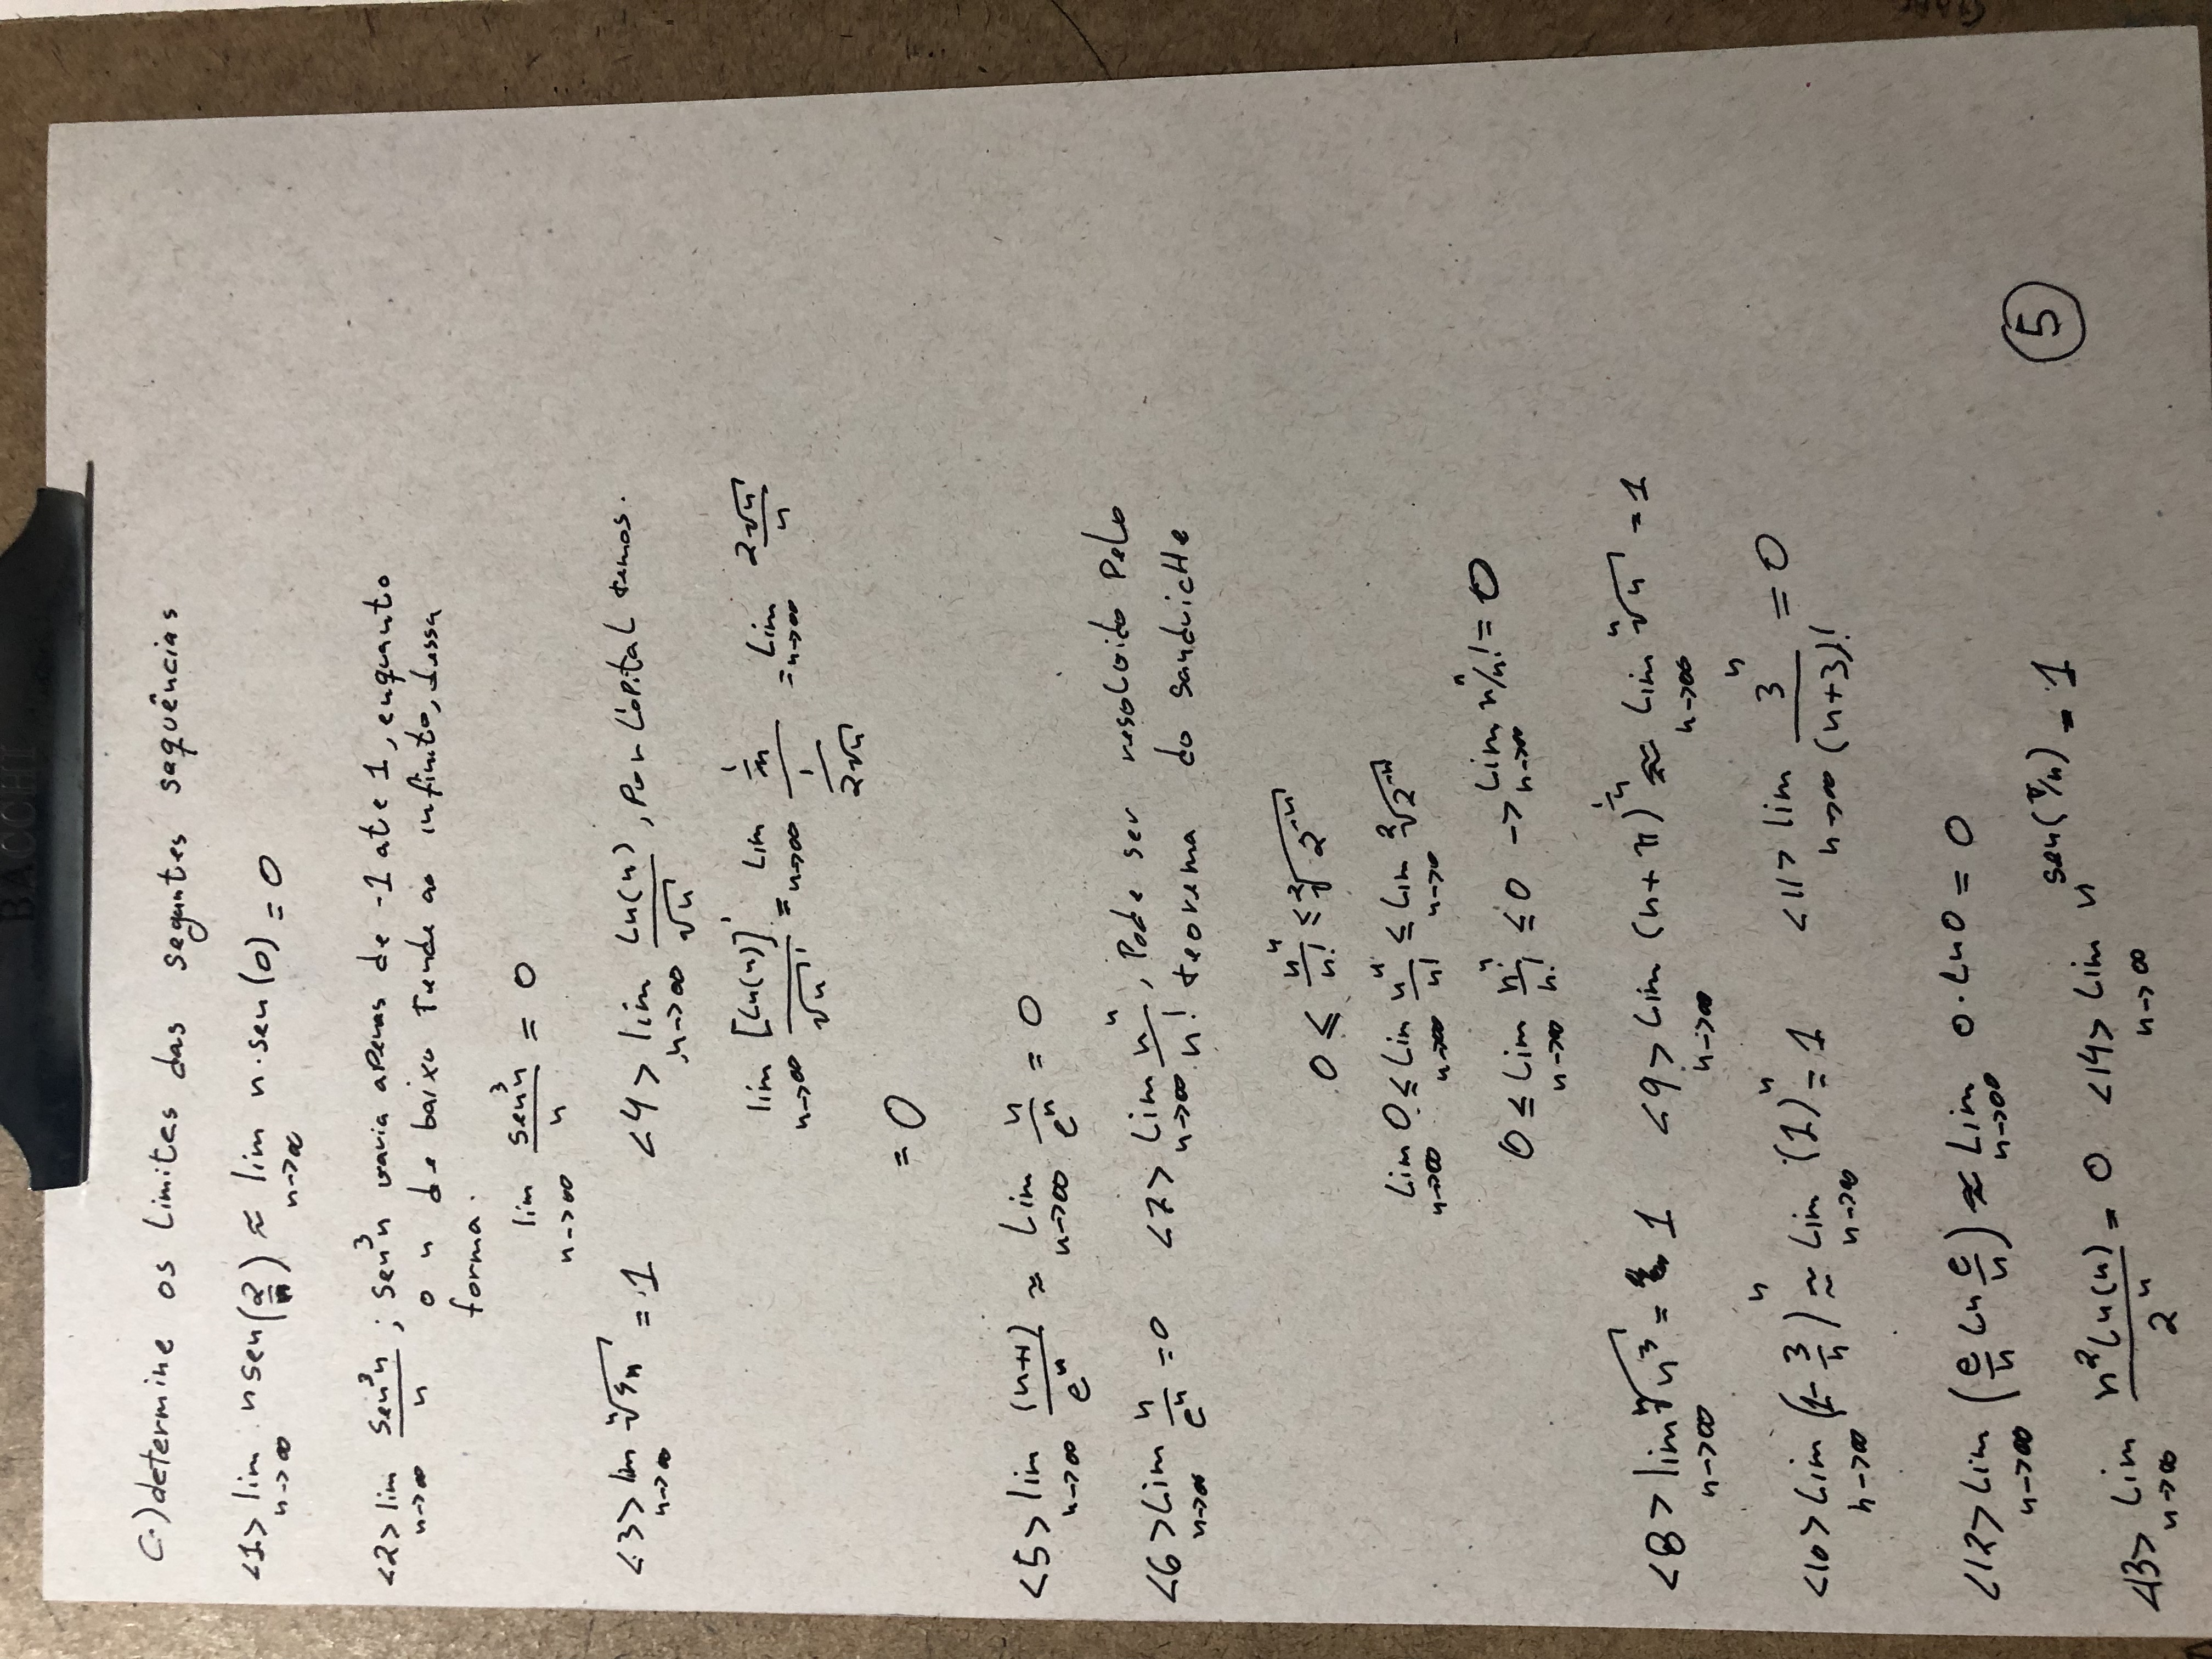 BACCHI
C.) determine os limites das seguntes sequências
<1> lim n→∞ n sen(2/n) ≈ lim n→∞ n·sen(0) = 0
<2> lim n→∞ sen³n/n ; sen³n varia apenas de -1 ate 1, enquanto
o n de baixo tende ao infinito, dessa
forma.
lim n→∞ sen³n/n = 0
<3> lim n→∞ ⁿ√5n = 1 <4> lim n→∞ Ln(n)/√n , Por L'opital temos.
lim n→∞ [Ln(n)]'/√n' = Lim n→∞ (1/n)/(1/2√n) = Lim n→∞ 2√n/n
= 0
<5> lim n→∞ (n+1)/eⁿ ≈ Lim n→∞ n/eⁿ = 0
<6> Lim n→∞ n/eⁿ = 0 <7> Lim n→∞ nⁿ/n! , Pode ser resolvido pelo
teorema do sanduicHe
0 ≤ nⁿ/n! ≤ ²√2⁻ⁿ
Lim n→∞ 0 ≤ Lim n→∞ nⁿ/n! ≤ Lim n→∞ ²√2⁻ⁿ
0 ≤ Lim n→∞ nⁿ/n! ≤ 0 → Lim n→∞ nⁿ/n! = 0
<8> lim n→∞ ⁿ√n³ = 1 <9> Lim n→∞ (n+π)^(1/n) ≈ Lim n→∞ ⁿ√n = 1
<10> Lim n→∞ (1-3/n)ⁿ ≈ Lim n→∞ (1)ⁿ = 1 <11> lim n→∞ 3ⁿ/(n+3)! = 0
<12> Lim n→∞ (e/n Ln e/n) ≈ Lim n→∞ 0·Ln0 = 0
<13> Lim n→∞ n²Ln(n)/2ⁿ = 0 <14> Lim n→∞ n^sen(π/n) = 1
5